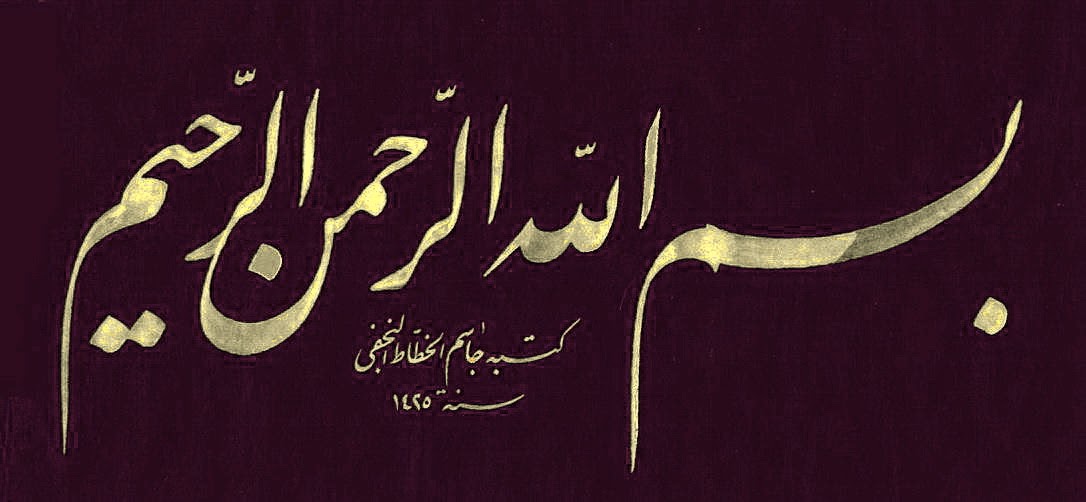 بسم الله الرّحمن الرّحيم
كتبه جاسم الخطّاط النجفي
سنة ١٤٢٥